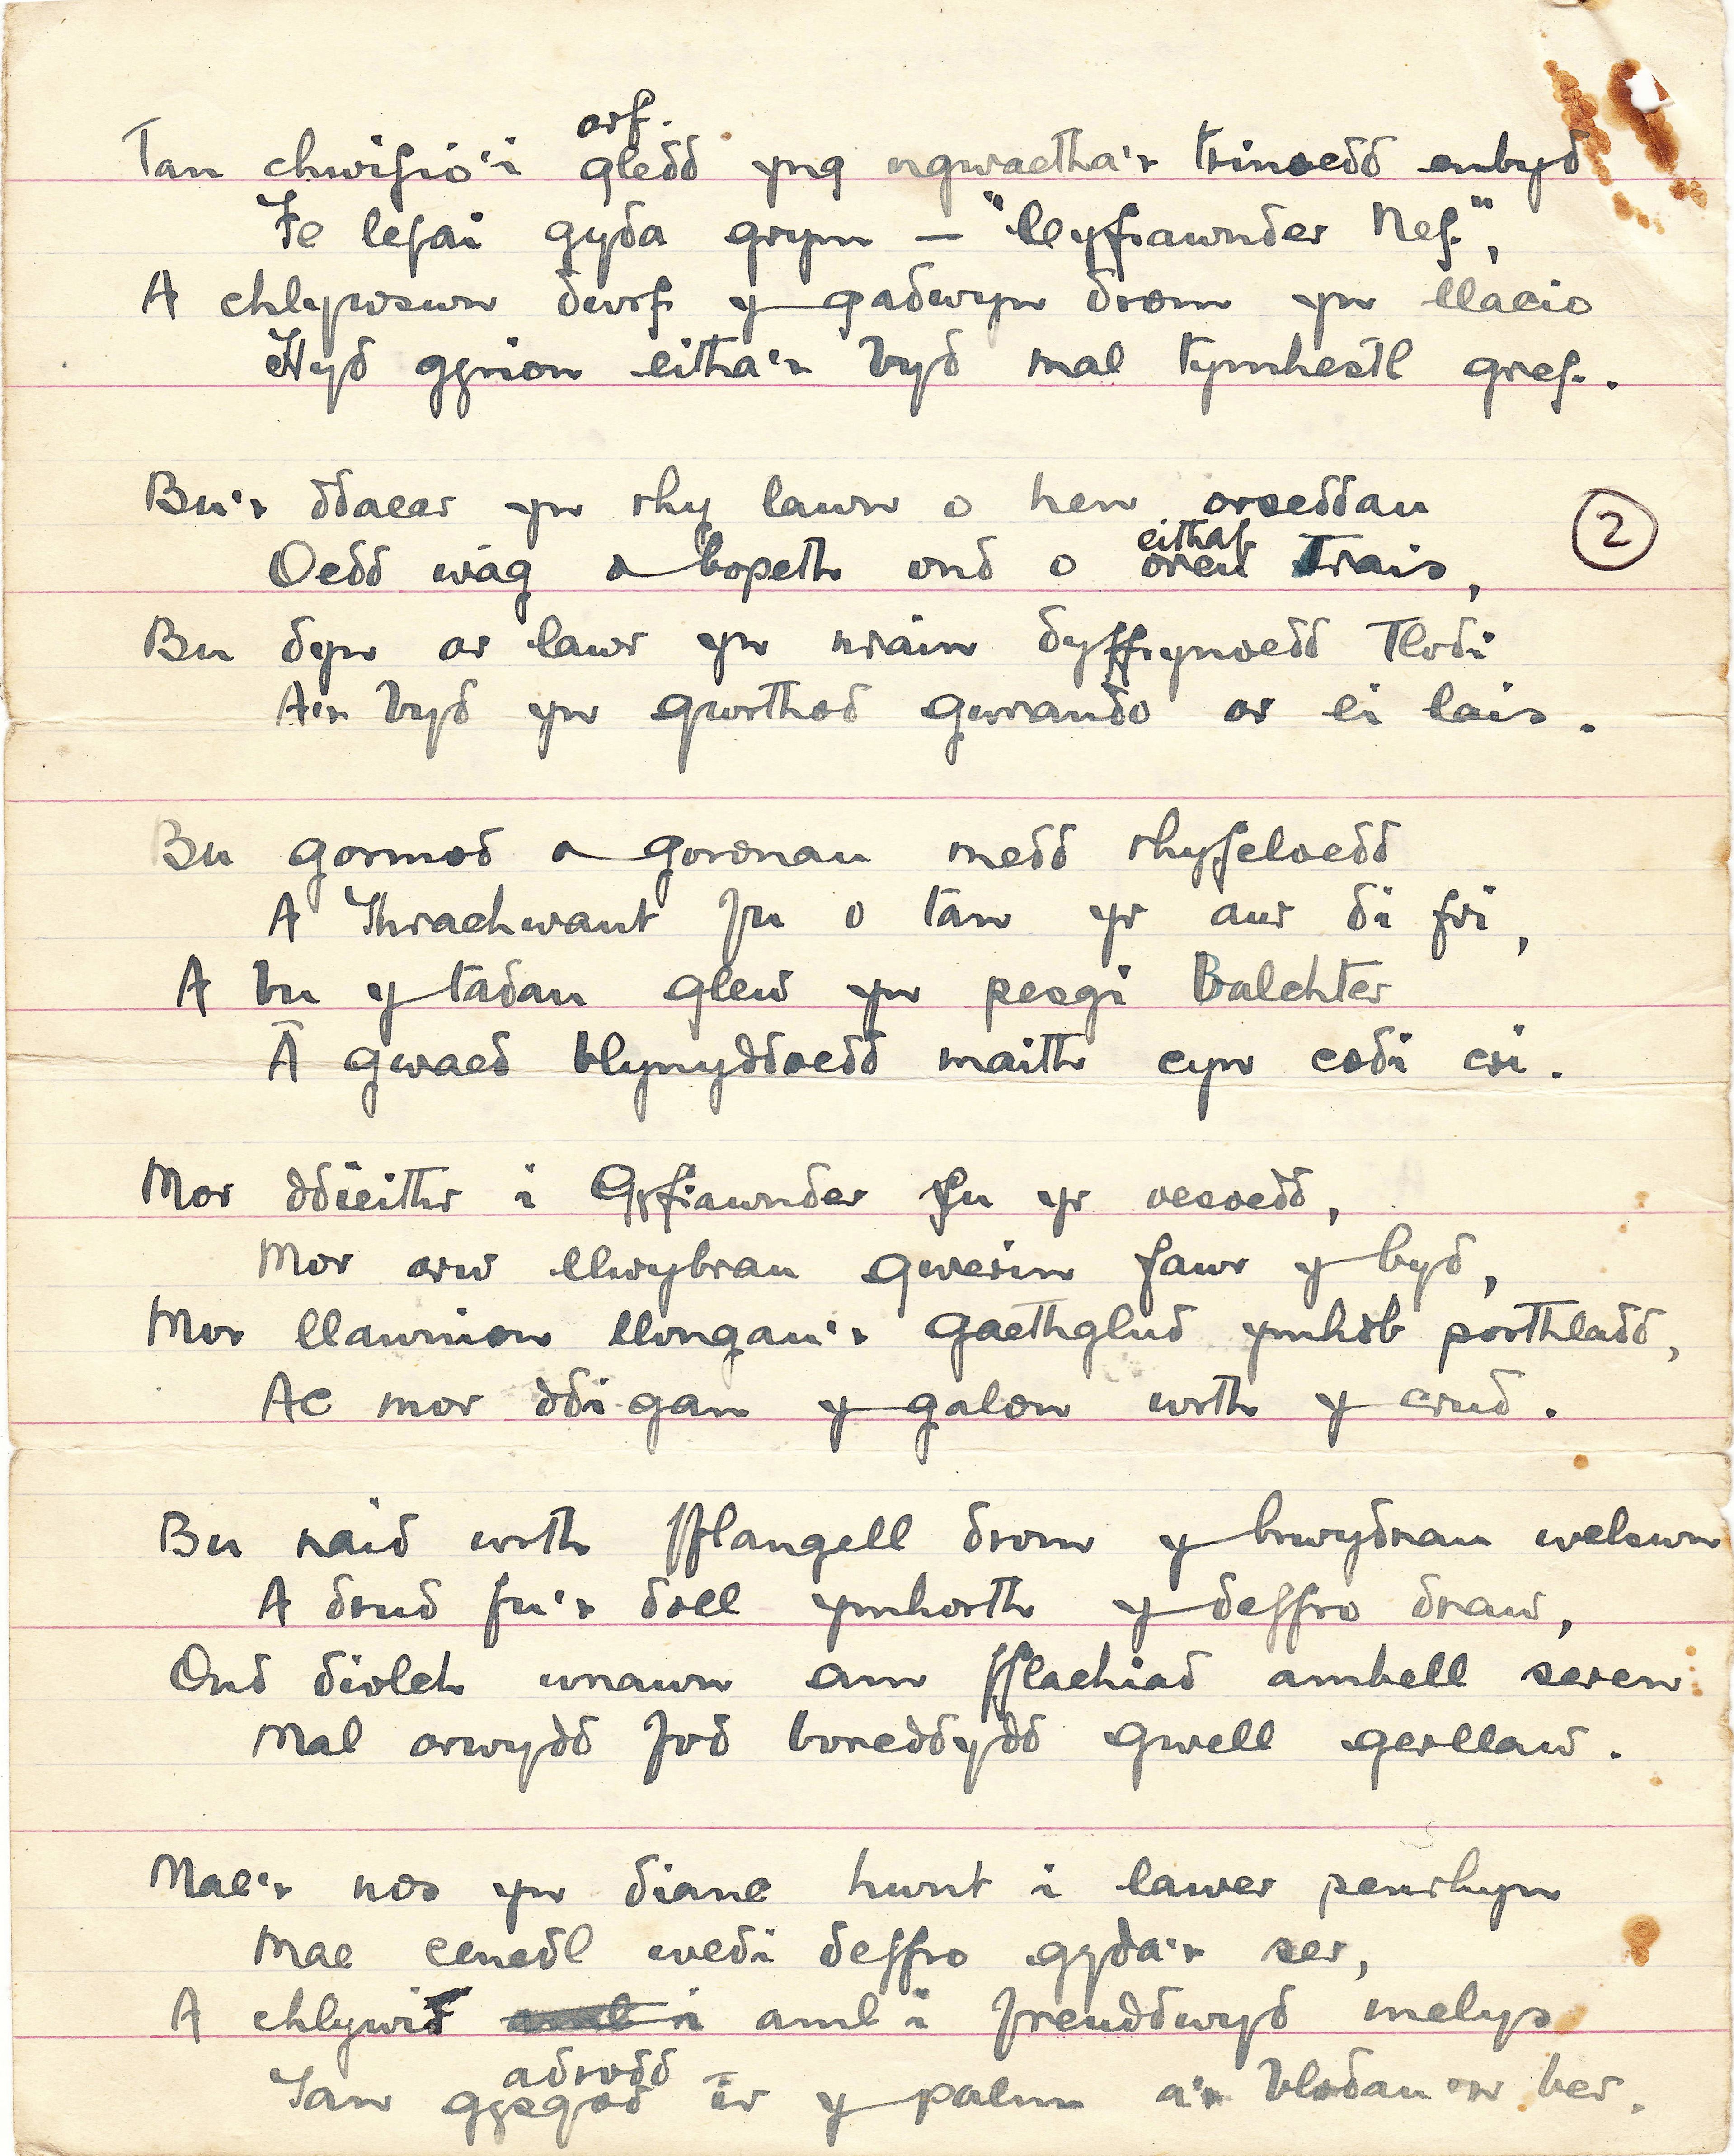 arf.
Tan chwifio'i gledd yng ngwaetha'r trinoedd enbyd
Fe lefai gyda grym — "Cyfiawnder Nef",
A chlywswn dwrf y gadwyn drom yn llacio
Hyd gyrion eitha'r byd mal tymhestl gref.
Bu'r ddaear yn rhy lawn o hen orseddau
eithaf
Oedd wâg a bopeth ond o oreu Trais,
2
Bu dyn ar lawr yn nrain dyffrynoedd Tlodi
A'r byd yn gwrthod gwrando ar ei lais.
Bu gormod a goronau medd rhyfeloedd
A Thrachwant fu o tan yr aur di fri,
A bu y tadau glew yn pesgi Balchter
A gwaed blynyddoedd maith cyn codi cri.
Mor ddieithr i Gyfiawnder fu yr oesoedd,
Mor arw llwybrau gwerin fawr y byd,
Mor llawnion llongau'r Gaethglud ymhob porthladd,
Ac mor ddi-gan y galon wrth y crud.
Bu raid wrth fflangell drom y brwydrau welswn
A drud fu'r doll ymhorth y deffro draw,
Ond diolch wnawn am fflachiad ambell seren
Mal arwydd fod boreddydd gwell gerllaw.
Mae'r nos yn dianc hwnt i lawer penrhyn
Mae cenedl wedi deffro gyda'r ser,
A chlywid aml i aml i freuddwyd melys
adrodd
Tan gysgod ir y palm a'r blodau per.